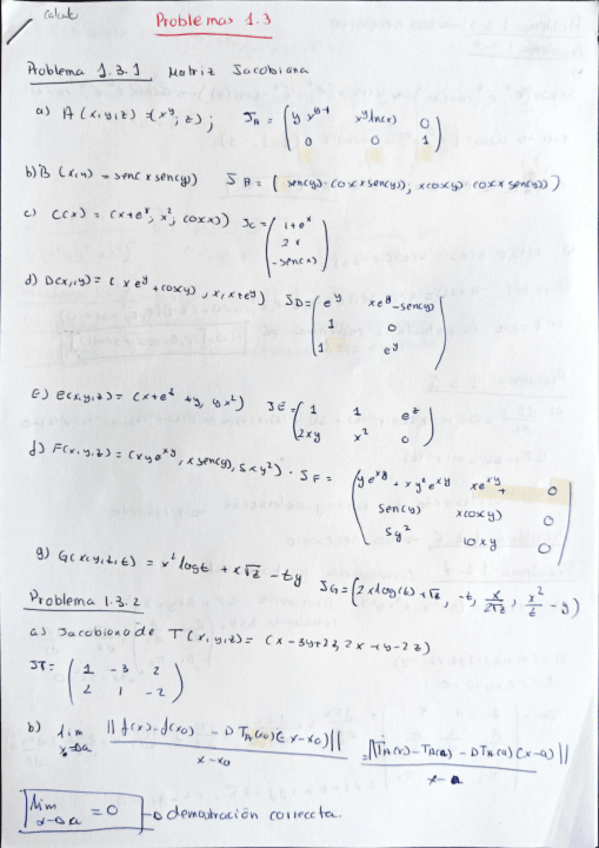 calculo
Problemas 1.3
Problema 1.3.1 Matriz Jacobiana
a) A(x,y,z) = (x^y, z); J_A = ( y x^{y-1} x^y ln(x) 0
0 0 1 )
b) B(x,y) = sen(x sen(y)) J_B = ( sen(y)·cos(x sen(y)); x cos(y)·cos(x sen(y)) )
c) C(x) = (x+e^x, x^2, cos(x)) J_C = ( 1+e^x
2x
-sen(x) )
d) D(x,y) = ( x e^y + cos(y), x, x+e^y ) J_D = ( e^y xe^y - sen(y)
1 0
1 e^y )
E) E(x,y,z) = (x+e^z +y, yx^2) J_E = ( 1 1 e^z
2xy x^2 0 )
f) F(x,y,z) = (xye^{xy}, x sen(y), 5xy^2). J_F = ( ye^{xy} + xy^2e^{xy} xe^{xy} + 0
sen(y) xcos(y) 0
5y^2 10xy 0 )
g) G(x,y,z,t) = x^2 log t + x√z - ty J_G = ( 2x log(t) + √z, -t, x/2√z, x^2/t - y )
Problema 1.3.2
a) Jacobiano de T(x,y,z) = (x-3y+2z, 2x+y-2z)
J_T = ( 1 -3 2
2 1 -2 )
b) lim x→a || f(x) - f(x0) - DT_A(x0)(x-x0) || / x-x0 = || T_A(x) - T_A(a) - DT_A(a)(x-a) || / x-a
lim x→a = 0 → demostración correcta.